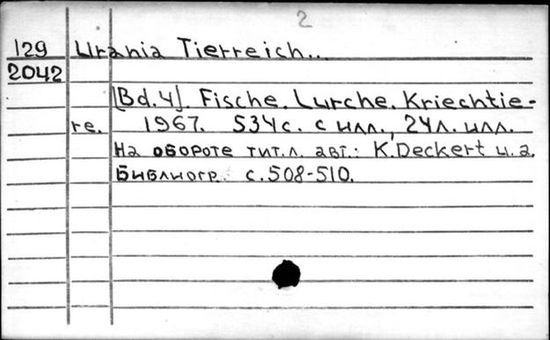 2
129 Urania Tierreich...
2042
[Bd.4]. Fische. Lurche. Kriechtie-
re. 1967. 534 с. с илл., 24 л. илл.
На обороте тит.л. авт.: K.Deckert u.a.
Библиогр. с.508-510.